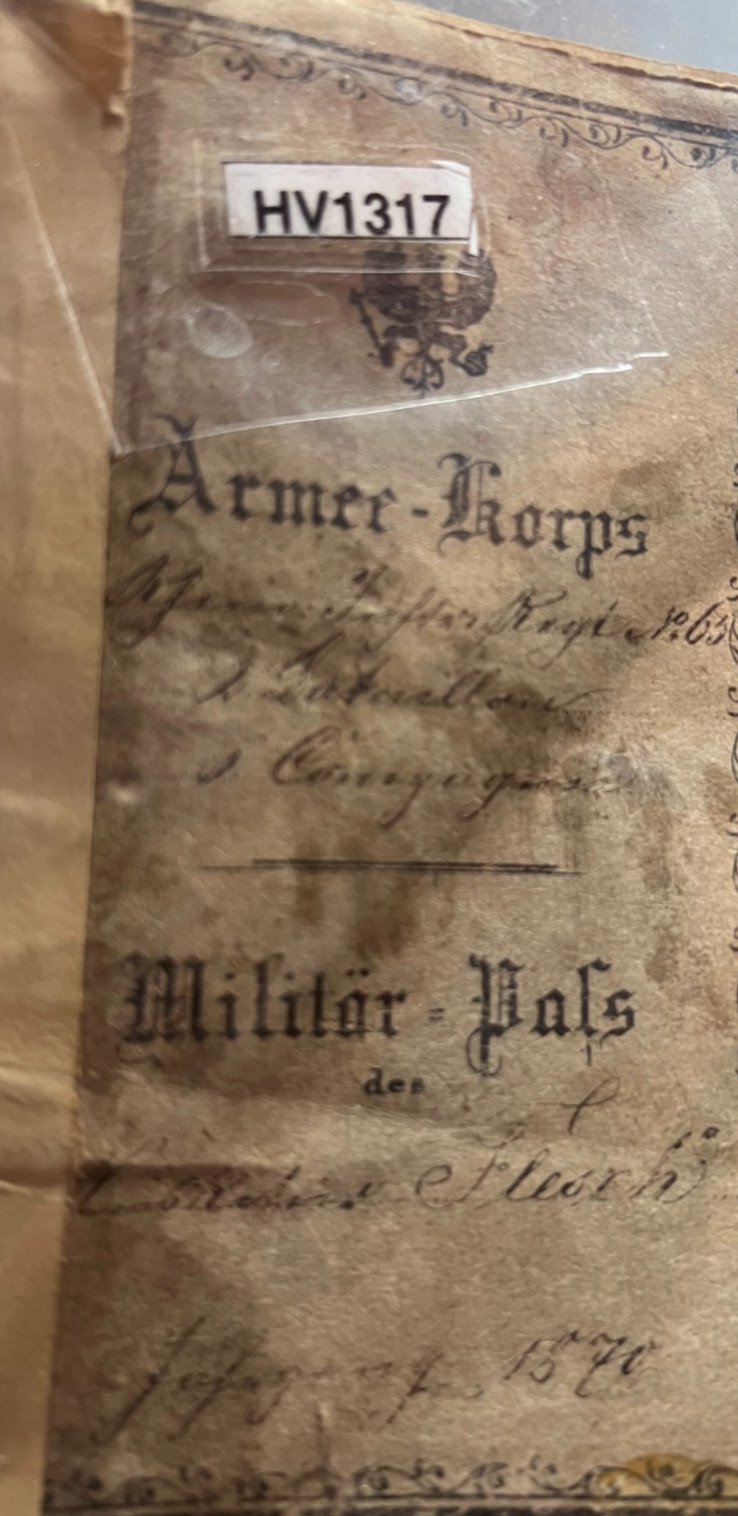 HV1317
Armee-Korps
Regt No. 65
2 Bataillon
Compagnie
Militär-Paſs
des
Flesch
Jahrgang 1870